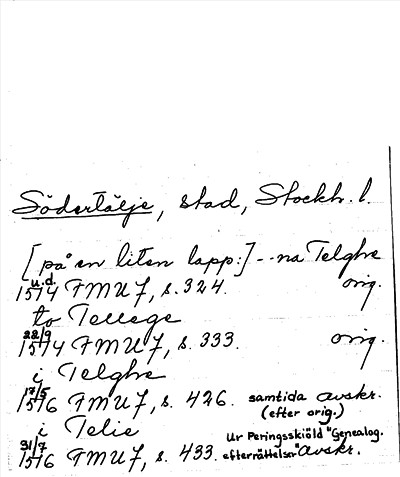 Södertälje, stad, Stockh. l.
[på en liten lapp:] -- na Telghe
u.d.
1514 FMU 7, s. 324. orig.
to Tellege
22/9
1514 FMU 7, s. 333. orig.
i Telghe
17/5
1516 FMU 7, s. 426. samtida avskr.
(efter orig.)
i Telie
31/7 ur Peringsskiöld "Genealog.
1516 FMU 7, s. 433. efterrättelsr" Avskr.